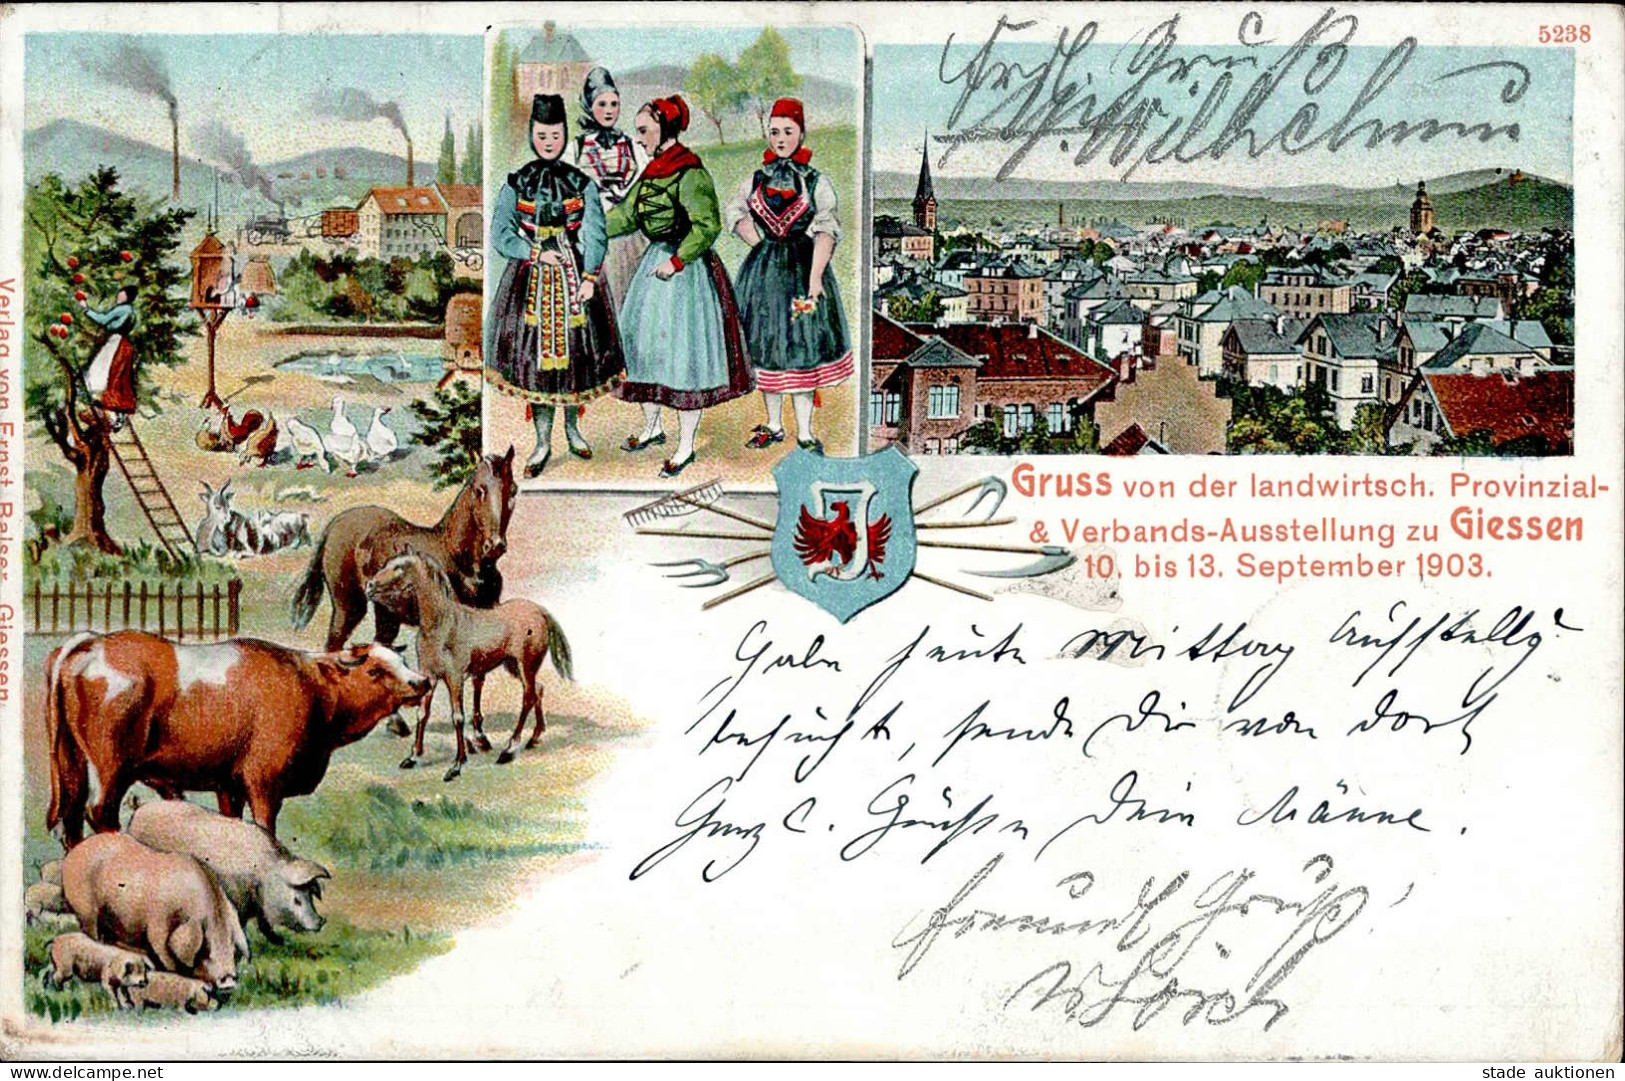 5238
Frdl. Gruß
Wilhelmine
Gruss von der landwirtsch. Provinzial-
& Verbands-Ausstellung zu Giessen
10. bis 13. September 1903.
Habe heute Mittag Ausstellg
besucht, sende Dir von dort
Herzl. Grüße Dein Männe.
Freundl Gruß!
Verlag von Ernst Balser, Giessen.
delcampe.net
stade auktionen